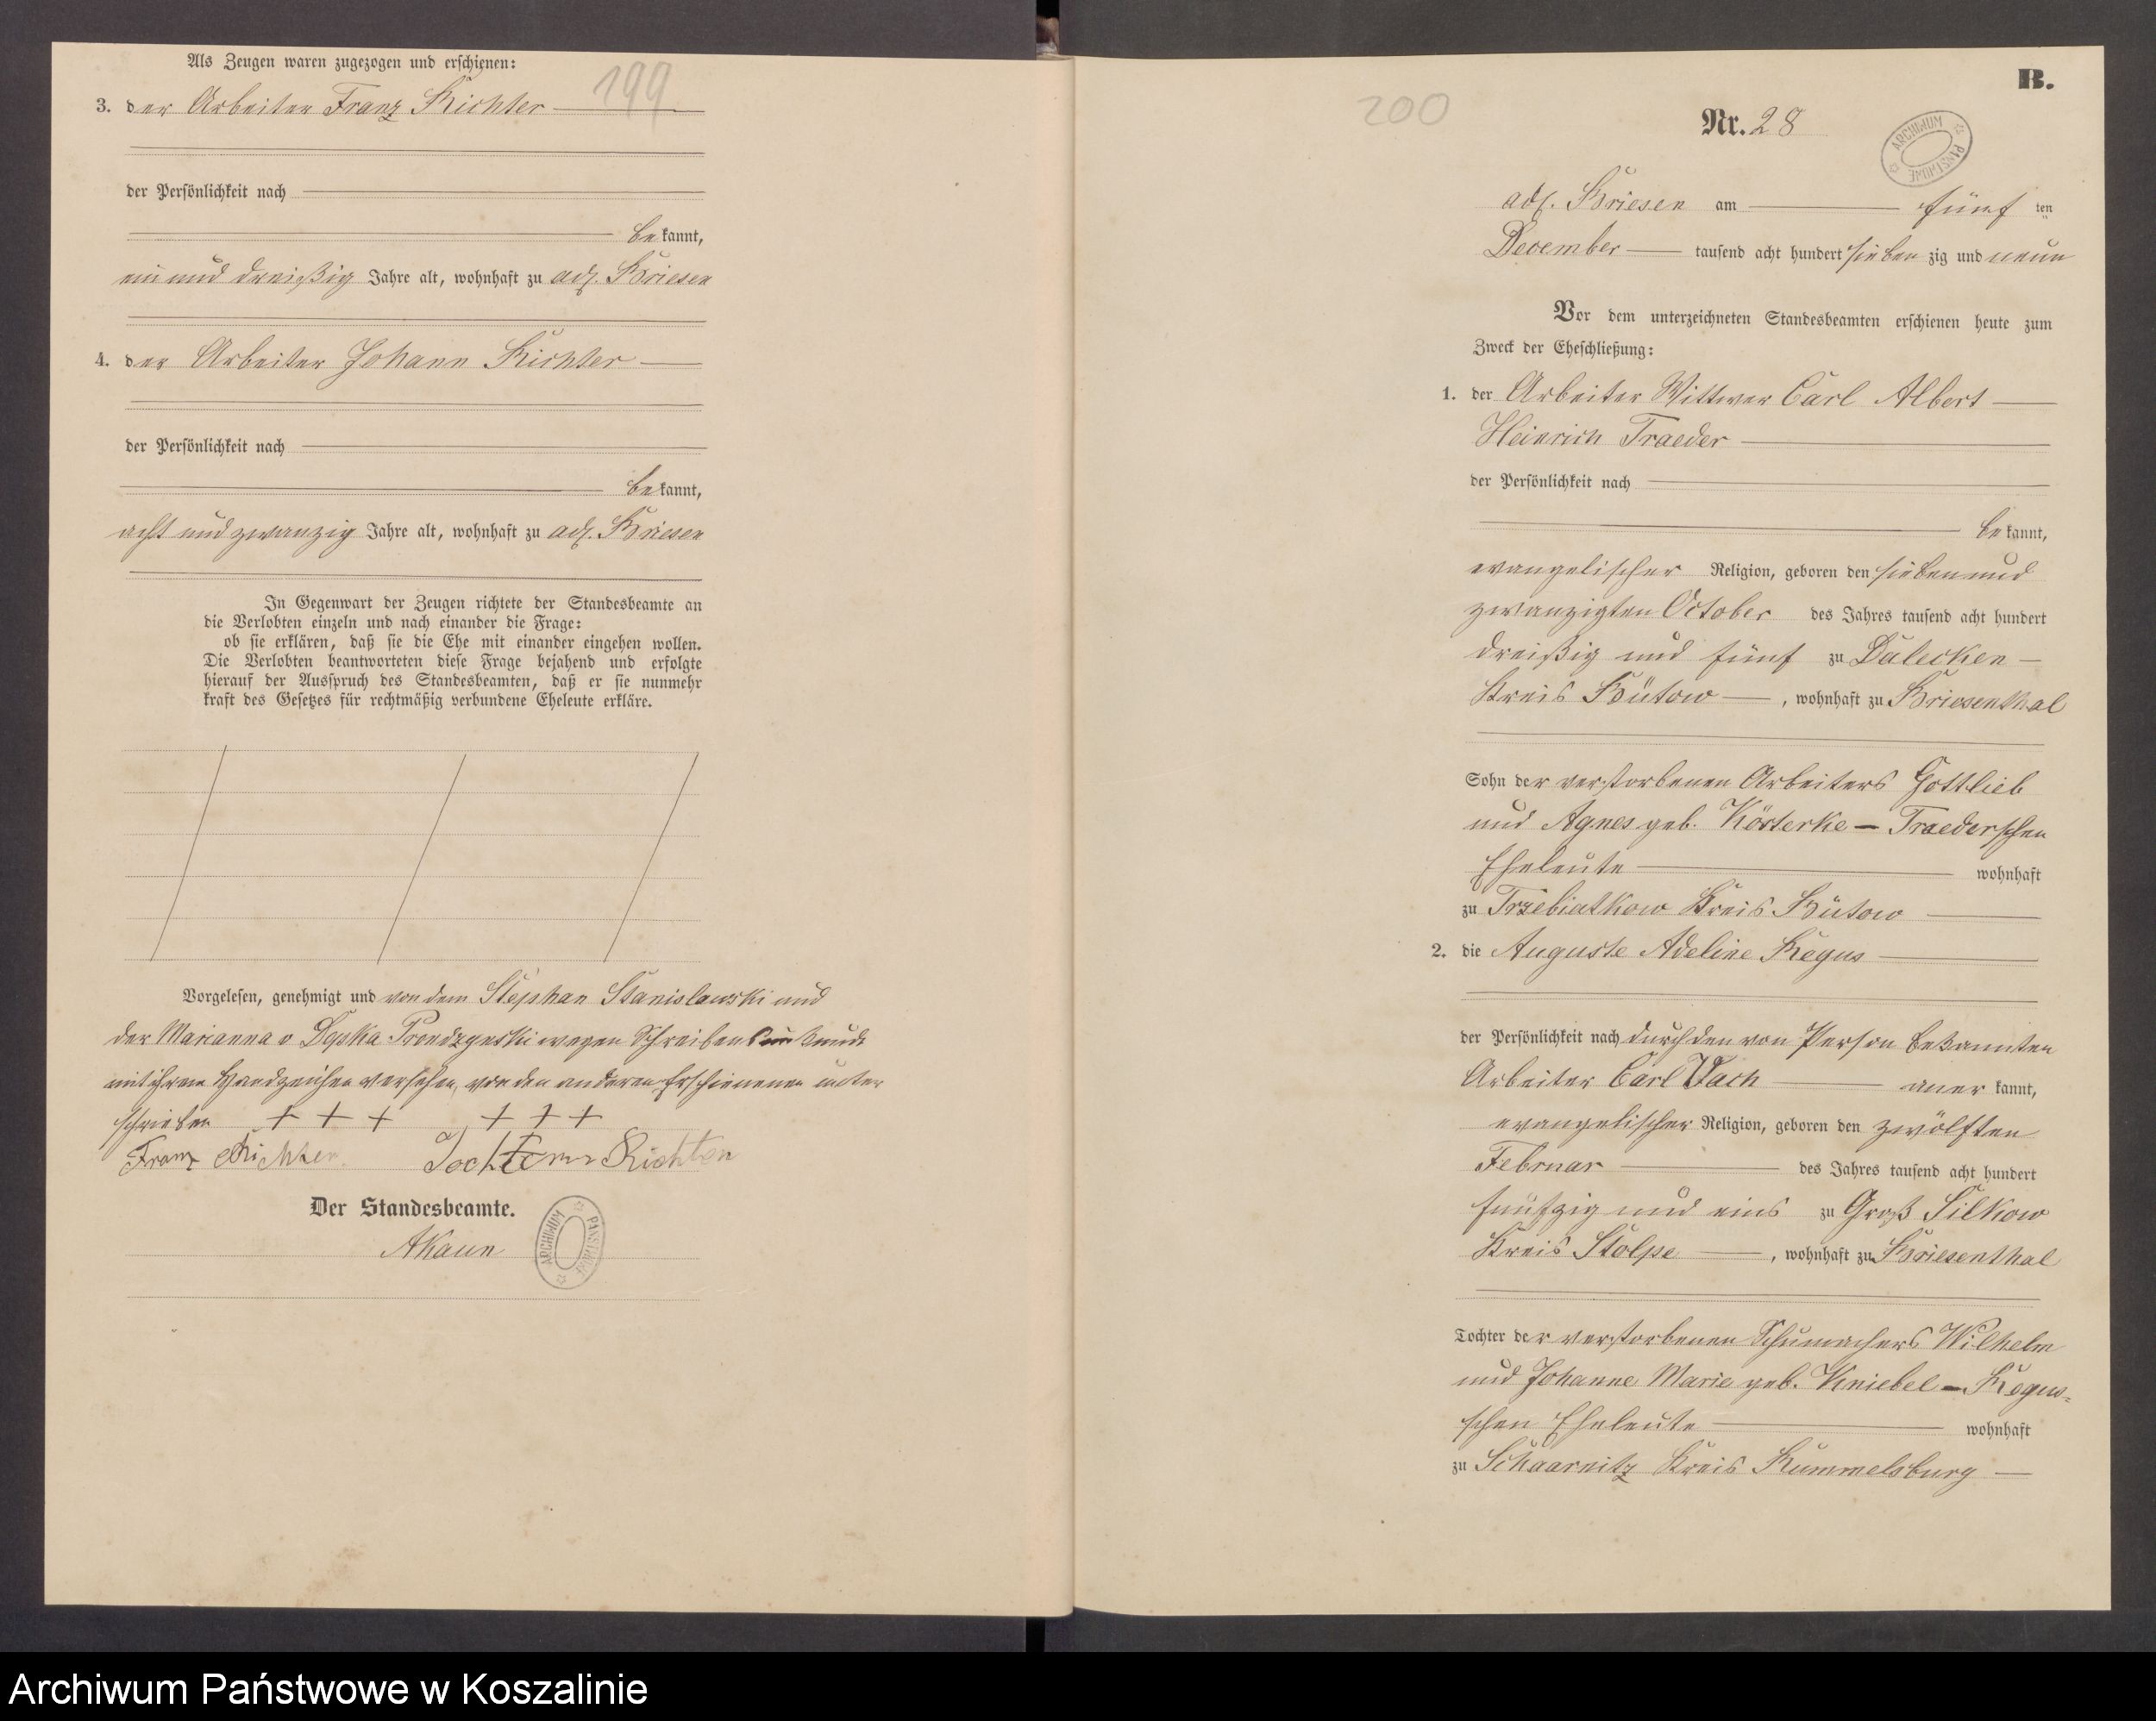 Als Zeugen waren zugezogen und erschienen:
199
3. der Arbeiter Franz Richter
der Persönlichkeit nach
bekannt,
ein und dreißig Jahre alt, wohnhaft zu adl. Briesen
4. der Arbeiter Johann Richter
der Persönlichkeit nach
bekannt,
acht und zwanzig Jahre alt, wohnhaft zu adl. Briesen
In Gegenwart der Zeugen richtete der Standesbeamte an
die Verlobten einzeln und nach einander die Frage:
ob sie erklären, daß sie die Ehe mit einander eingehen wollen.
Die Verlobten beantworteten diese Frage bejahend und erfolgte
hierauf der Ausspruch des Standesbeamten, daß er sie nunmehr
kraft des Gesetzes für rechtmäßig verbundene Eheleute erkläre.
Vorgelesen, genehmigt und von dem Stephan Stanislawski und
der Marianna v Depka Prondzynski wegen Schreibensunkunde
mit ihrem Handzeichen versehen, von den anderen Erschienenen unter
schrieben + + + + + +
Franz Richter Richter
Der Standesbeamte.
ARCHIWUM PAŃSTWOWE
200
B.
Nr. 28
ARCHIWUM PAŃSTWOWE
adl. Briesen am fünf ten
December tausend acht hundert sieben zig und neun
Vor dem unterzeichneten Standesbeamten erschienen heute zum
Zweck der Eheschließung:
1. der Arbeiter Wittwer Carl Albert
Heinrich Traeder
der Persönlichkeit nach
bekannt,
evangelischer Religion, geboren den sieben und
zwanzigten October des Jahres tausend acht hundert
dreißig und fünf zu Damerkow
Kreis Bütow, wohnhaft zu Briesenthal
Sohn der verstorbenen Arbeiters Gottlieb
und Agnes geb. Kösterke – Traederschen
Eheleute wohnhaft
zu Trzebiatkow Kreis Bütow
2. die Auguste Adeline Regus
der Persönlichkeit nach durch den von Person bekannten
Arbeiter Carl Vach anerkannt,
evangelischer Religion, geboren den zwölften
Februar des Jahres tausend acht hundert
fünfzig und eins zu Groß Silkow
Kreis Stolpe, wohnhaft zu Briesenthal
Tochter der verstorbenen Schumachers Wilhelm
und Johanne Marie geb. Kniebel – Regus-
schen Eheleute wohnhaft
zu Schaarnitz Kreis Rummelsburg
Archiwum Państwowe w Koszalinie